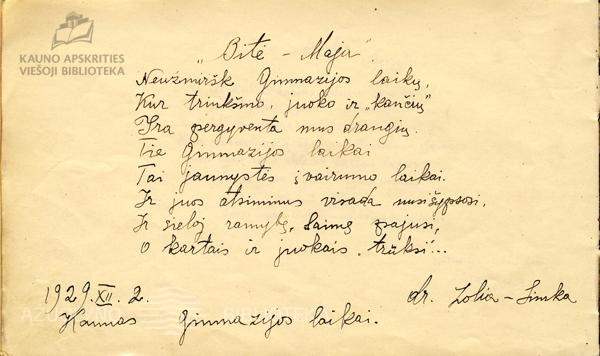 KAUNO APSKRITIES
VIEŠOJI BIBLIOTEKA
"Bitė - Maja".
Neužmiršk Gimnazijos laikų,
Kur trinkšmo, juoko ir "kančių"
Yra pergyventa mus draugių.
Tie Gimnazijos laikai
Tai jaunystės įvairumo laikai.
Ir juos atsiminus visada nusišypsosi,
Ir sieloj ramybę, laimę pajusi,
O kartais ir juokais "trūksi"...
1929.XII.2. dr. Zolia - Simka
Kaunas Gimnazijos laikai.